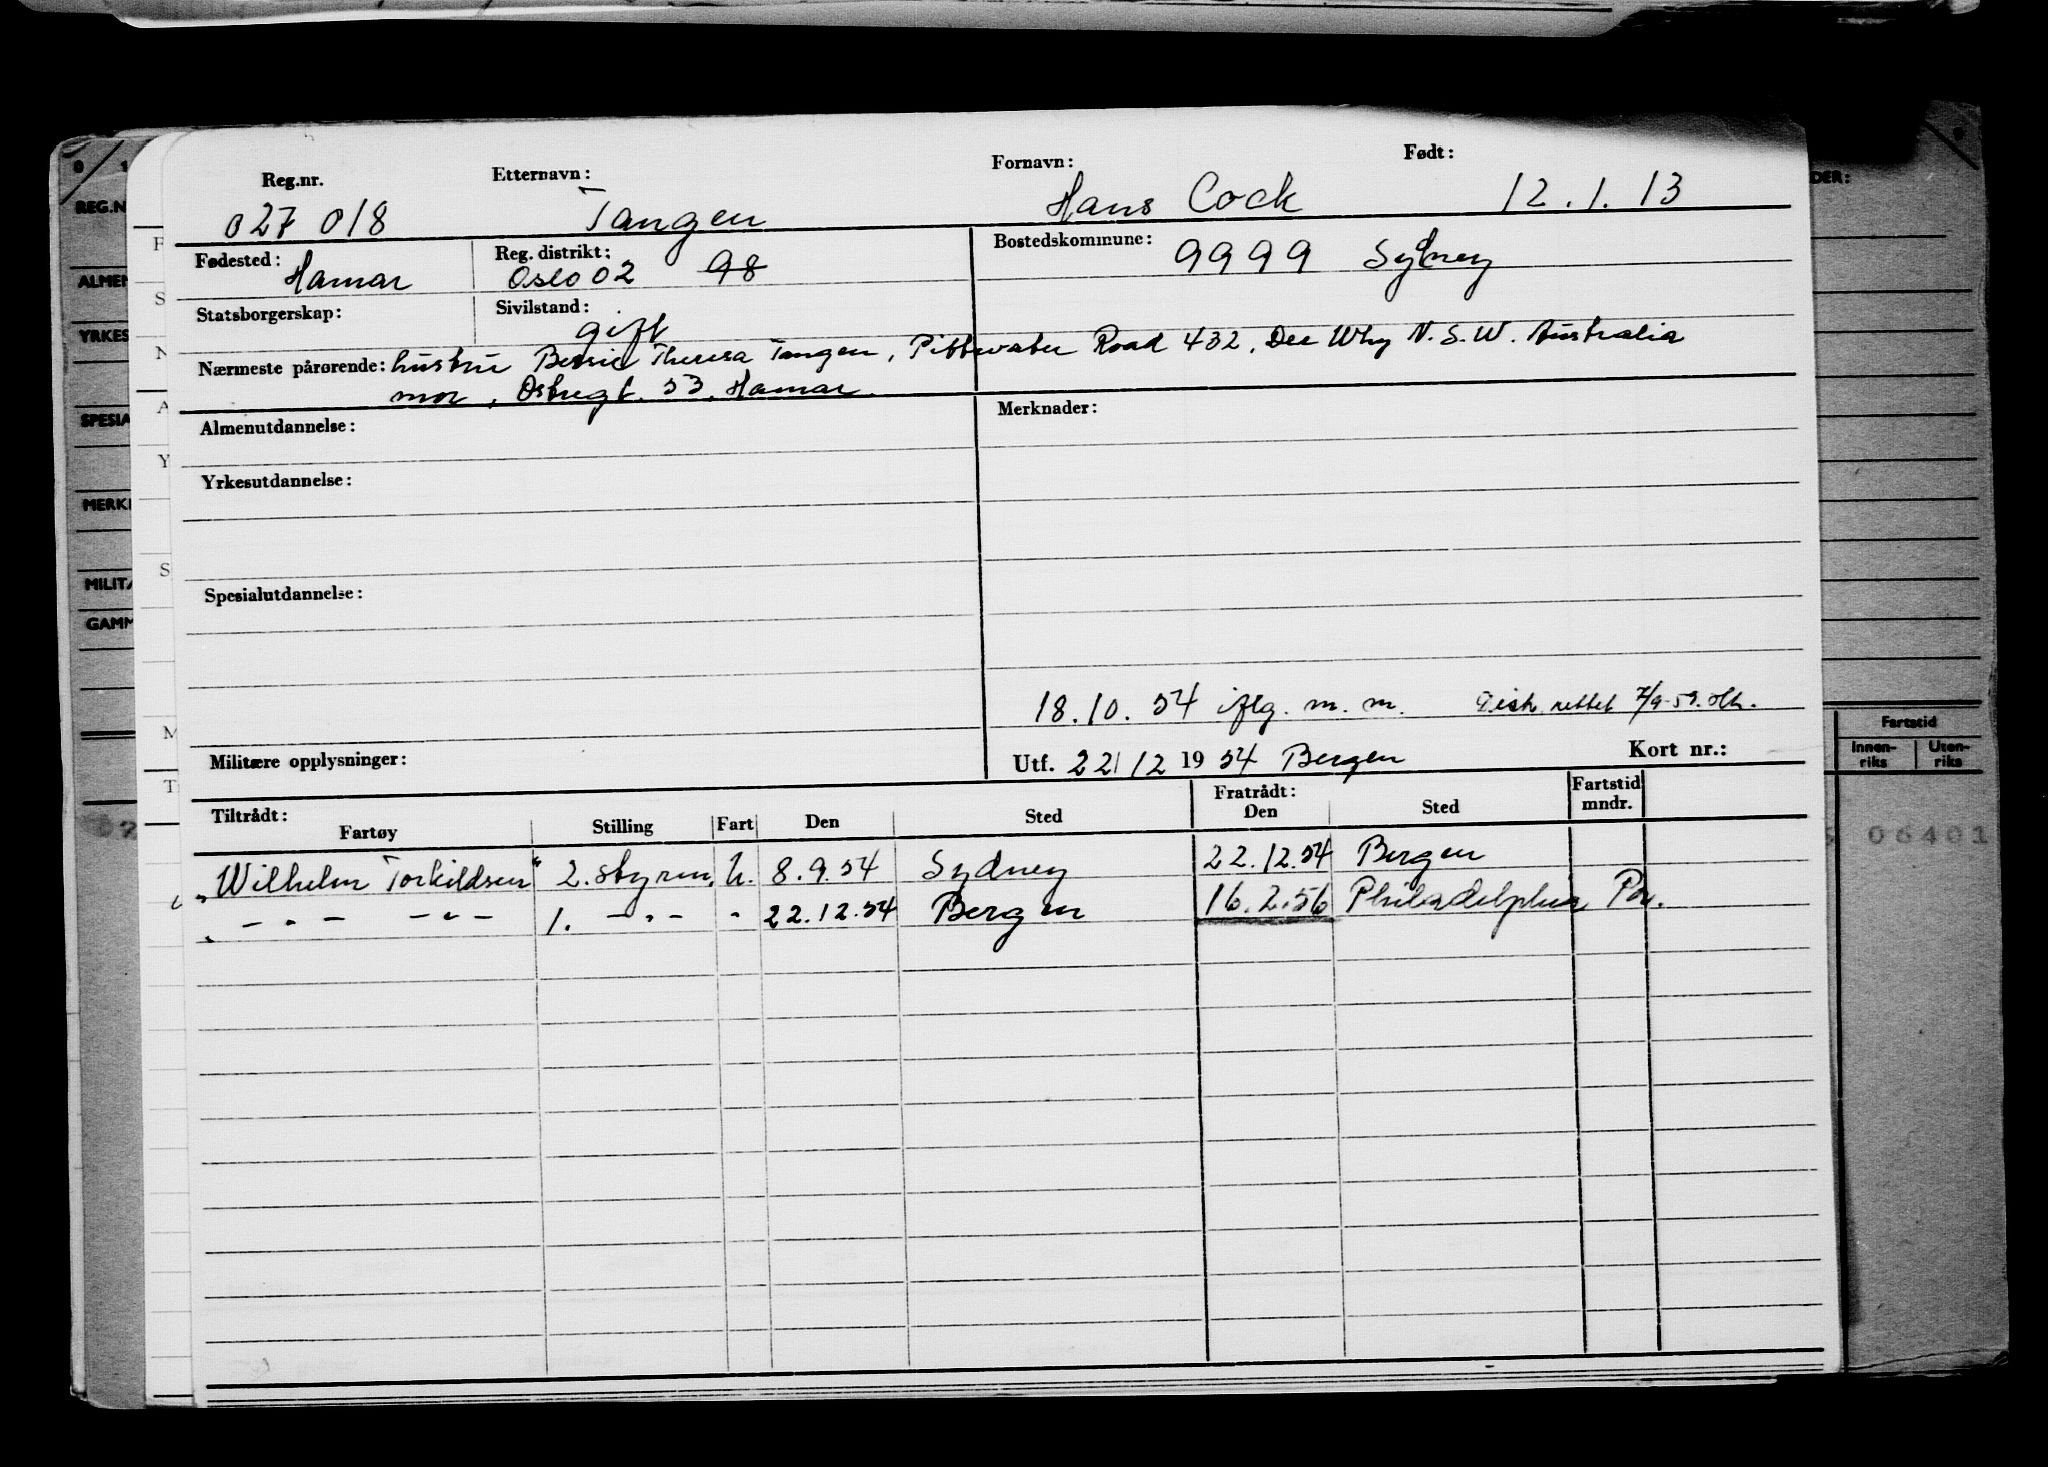 Reg.nr. Etternavn: Fornavn: Født:
027 018 Tangen Hans Cock 12.1.13
Fødested: Hamar Reg. distrikt: Oslo 02 98 Bostedskommune: 9999 Sydney
Statsborgerskap: Sivilstand: gift
Nærmeste pårørende: hustru Bessie Theresa Tangen, Pittwater Road 432, Dee Why N.S.W. Australia
mor, Østregt. 53, Hamar.
Almenutdannelse: Merknader:
Yrkesutdannelse:
Spesialutdannelse:
18.10.54 iflg. m.m. Distr. rettet 7/9-59.
Militære opplysninger: Utf. 22/12 1954 Bergen Kort nr.:
Tiltrådt: Fratrådt: Fartstid
Fartøy Stilling Fart Den Sted Den Sted mndr.
"Wilhelm Torkildsen" 2. styrm. U. 8.9.54 Sydney 22.12.54 Bergen
- " - - " - 1. - " - " 22.12.54 Bergen 16.2.56 Philadelphia Pa.
REG.N
ALMEN
YRKES
SPESIA
MERK
MILITÆ
GAMM
DER:
Fartstid
Innen-riks Uten-riks
06401